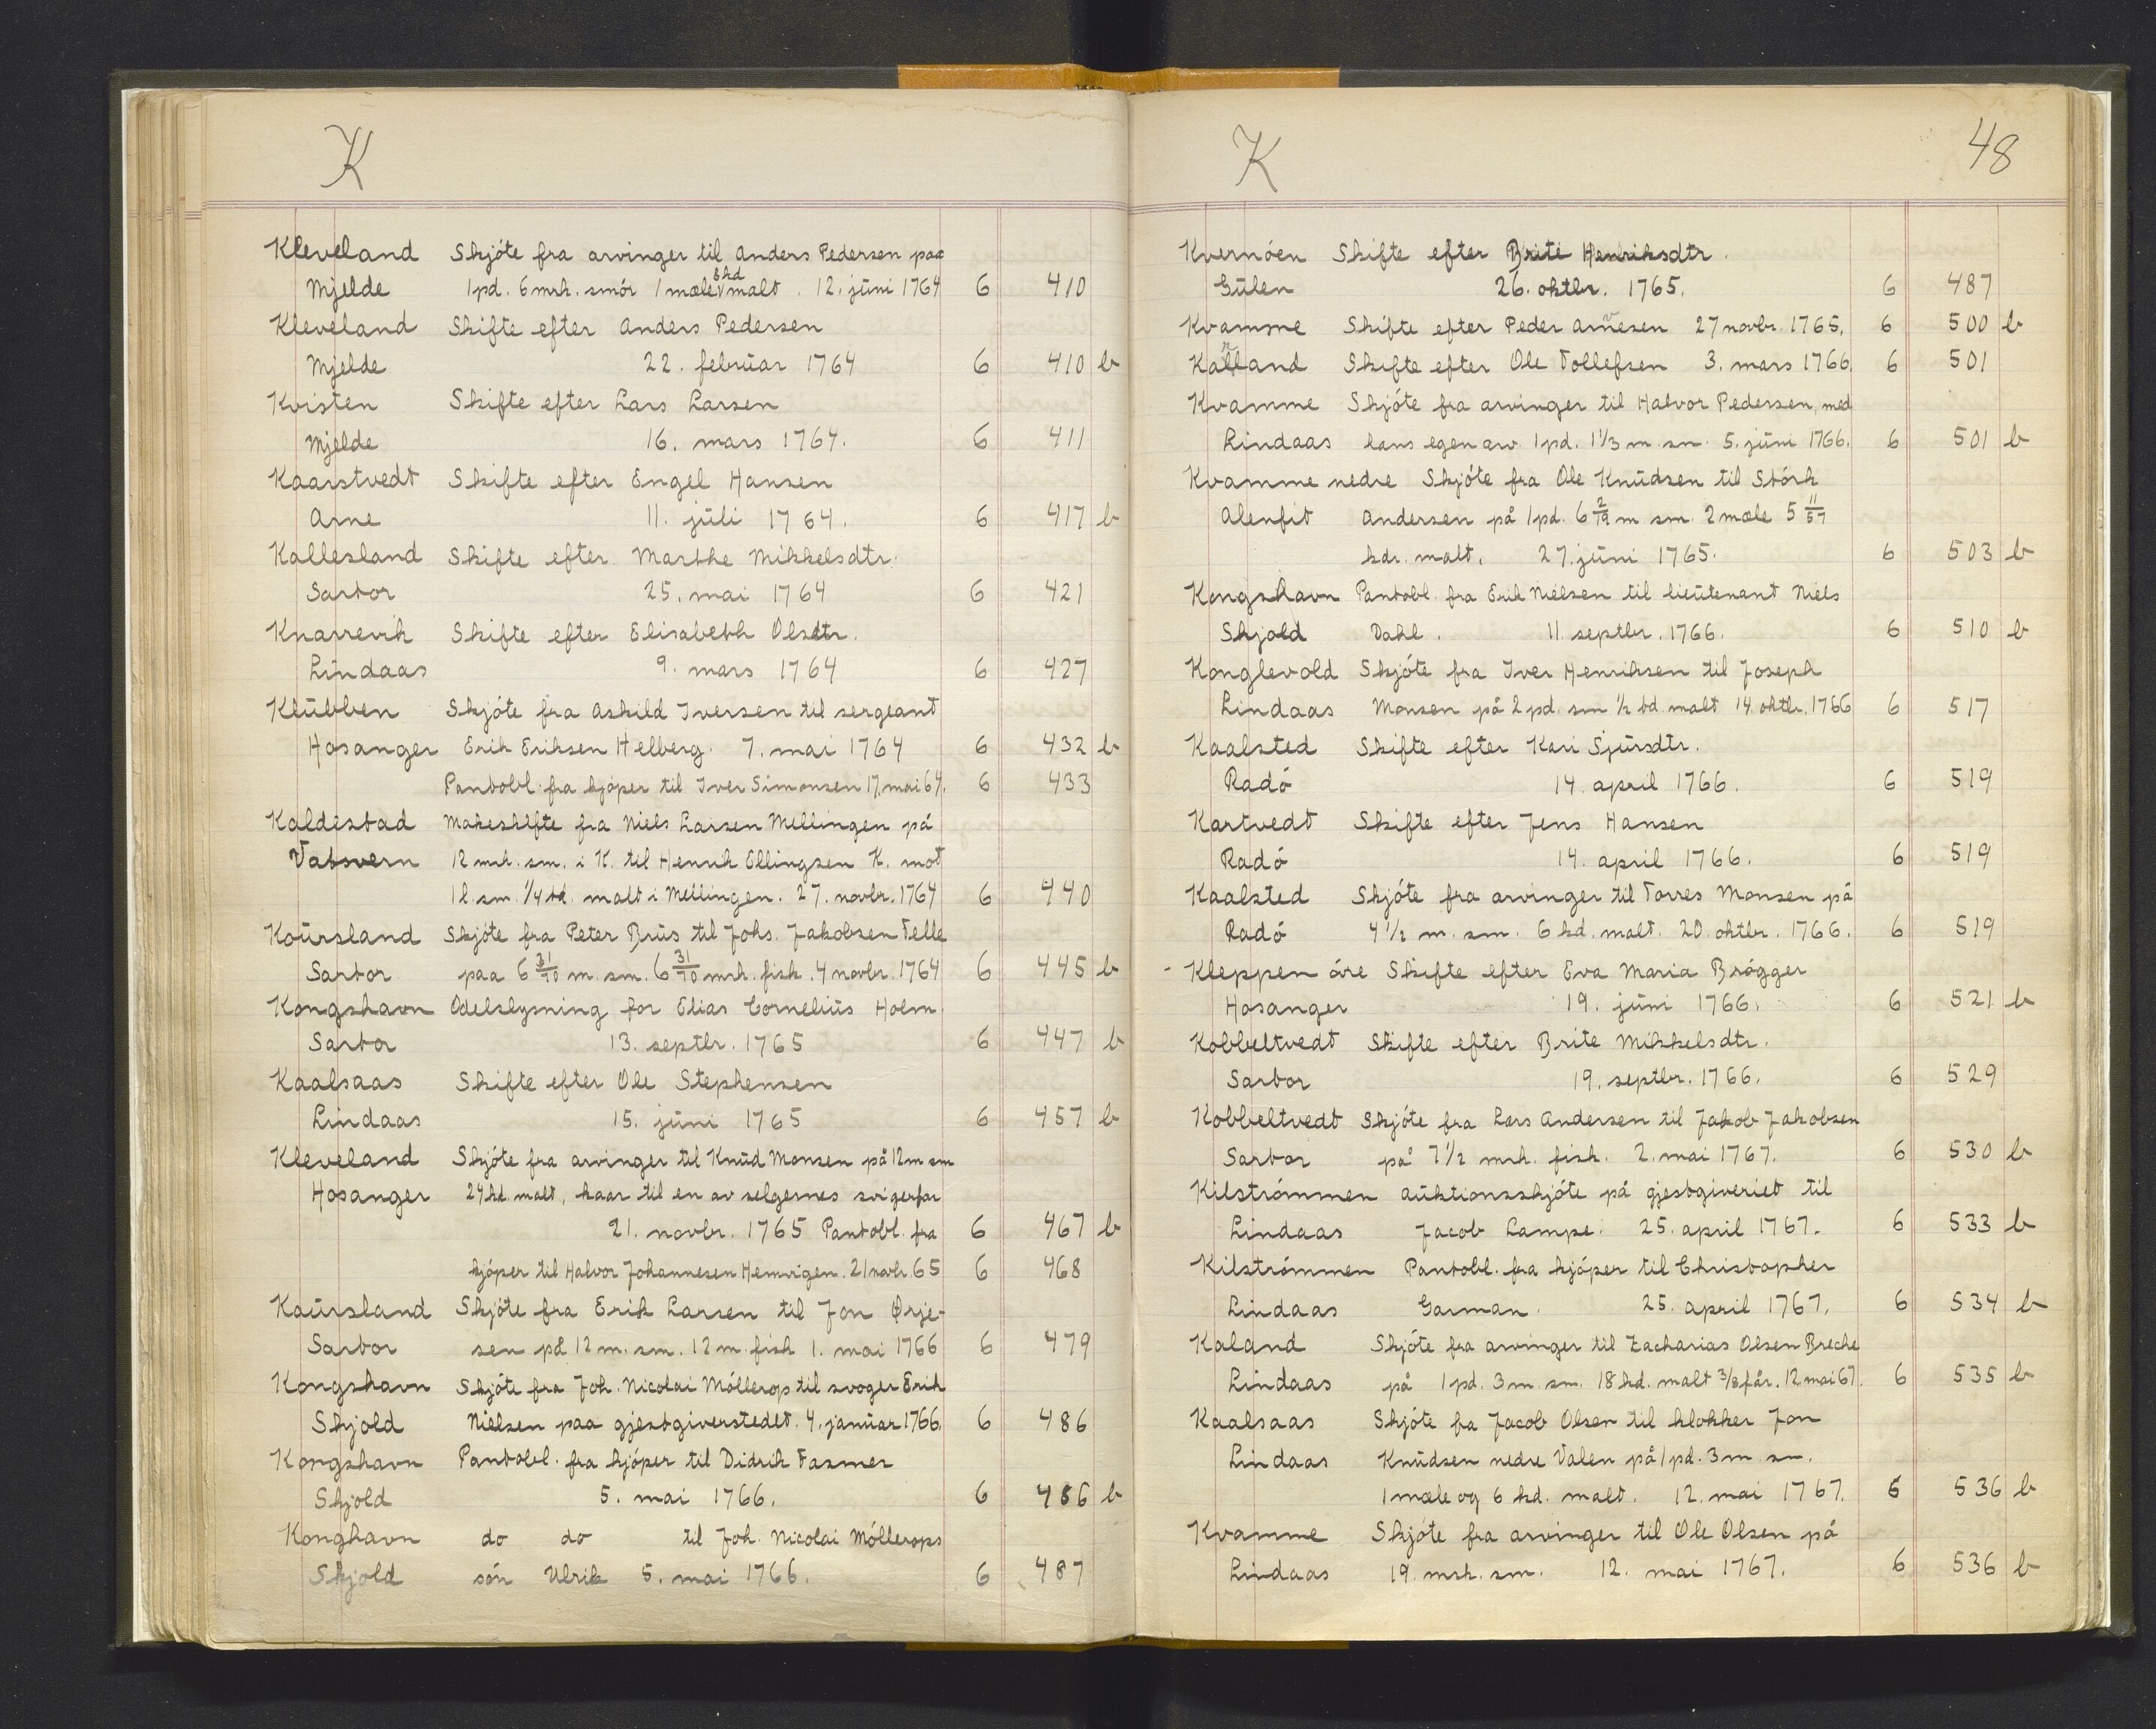 K
Kleveland Skjöte fra arvinger til Anders Pedersen paa
Mjelde 1 pd. 6 mrk. smör 1 mæle 8 kd malt. 12. juni 1764 6 410
Kleveland Skifte efter Anders Pedersen
Mjelde 22. februar 1764 6 410 b
Kvisten Skifte efter Lars Larsen
Mjelde 16. mars 1764. 6 411
Kaarstvedt Skifte efter Engel Hansen
Arne 11. juli 1764. 6 417 b
Kallesland Skifte efter Marthe Mikkelsdtr.
Sartor 25. mai 1764 6 421
Knarrevik Skifte efter Elisabeth Olsdtr.
Lindaas 9. mars 1764 6 427
Klubben Skjöte fra Askild Iversen til sergeant
Hosanger Erik Eriksen Helberg. 7. mai 1764 6 432 b
Pantobl. fra kjöper til Iver Simonsen 17. mai 64. 6 433
Kaldestad Makeskifte fra Niels Larsen Mellingen på
Vatsvern 12 mrk. sm. i K. til Henrik Ellingsen K. mot
1 l. sm. 1/4 td. malt i Mellingen. 27. novbr. 1764 6 440
Koursland Skjöte fra Peter Brus til Johs. Jakobsen Telle
Sartor paa 6 31/70 m. sm. 6 31/70 mrk. fisk. 4 novbr. 1764 6 445 b
Kongshavn Odelslysning for Elias Cornelius Holm.
Sartor 13. septbr. 1765 6 447 b
Kaalsaas Skifte efter Ole Stephensen
Lindaas 15. juni 1765 6 457 b
Kleveland Skjöte fra arvinger til Knud Monsen på 12 m sm
Hosanger 24 kd. malt, kaar til en av selgernes svigerfar
21. novbr. 1765 Pantobl. fra 6 467 b
kjöper til Halvor Johannesen Hemvigen. 21 novbr. 65 6 468
Kaursland Skjöte fra Erik Larsen til Jon Ørje-
Sartor sen på 12 m. sm. 12 m. fisk 1. mai 1766 6 479
Kongshavn Skjöte fra Joh. Nicolai Möllerop til svoger Erik
Skjold Nielsen paa gjestgiverstedet. 4. januar 1766. 6 486
Kongshavn Pantobl. fra kjöper til Didrik Fasmer
Skjold 5. mai 1766. 6 486 b
Konghavn do do til Joh. Nicolai Möllerops
Skjold sön Ulrik 5. mai 1766. 6 487
K 48
Kvernöen Skifte efter Brite Henriksdtr.
Gulen 26. oktbr. 1765. 6 487
Kvamme Skifte efter Peder Arnesen 27 novbr. 1765. 6 500 b
Kalland Skifte efter Ole Tollefsen 3. mars 1766. 6 501
Kvamme Skjöte fra arvinger til Halvor Pedersen, med
Lindaas hans egen arv 1 pd. 1 1/3 m. sm. 5. juni 1766. 6 501 b
Kvamme nedre Skjöte fra Ole Knudsen til Störk
Alenfit Andersen på 1 pd. 6 2/19 m sm. 2 mæle 5 11/57
kdr. malt. 27. juni 1765. 6 503 b
Kongshavn Pantobl. fra Erik Nielsen til lieutenant Niels
Skjold Dahl. 11. septbr. 1766. 6 510 b
Konglevold Skjöte fra Iver Henriksen til Joseph
Lindaas Monsen på 2 pd. sm 1/2 td. malt 14. oktbr. 1766 6 517
Kaalsted Skifte efter Kari Sjursdtr.
Radö 14. april 1766. 6 519
Kartvedt Skifte efter Jens Hansen
Radö 14. april 1766. 6 519
Kaalsted Skjöte fra arvinger til Torres Monsen på
Radö 4 1/2 m. sm. 6 kd. malt. 20. oktbr. 1766. 6 519
- Kleppen övre Skifte efter Eva Maria Brögger
Hosanger 19. juni 1766. 6 521 b
Kobbeltvedt Skifte efter Brite Mikkelsdtr.
Sartor 19. septbr. 1766. 6 529
Kobbeltvedt Skjöte fra Lars Andersen til Jakob Jakobsen
Sartor på 7 1/2 mrk. fisk. 2. mai 1767. 6 530 b
Kilströmmen Auktionsskjöte på gjestgiveriet til
Lindaas Jacob Lampe. 25. april 1767. 6 533 b
Kilströmmen Pantobl. fra kjöper til Christopher
Lindaas Garman. 25. april 1767. 6 534 b
Kaland Skjöte fra arvinger til Zacharias Olsen Breche
Lindaas på 1 pd. 3 m. sm. 18 kd. malt 3/8 får. 12. mai 67. 6 535 b
Kaalsaas Skjöte fra Jacob Olsen til klokker Jon
Lindaas Knudsen nedre Valen på 1 pd. 3 m sm.
1 mæle og 6 kd. malt. 12. mai 1767. 6 536 b
Kvamme Skjöte fra arvinger til Ole Olsen på
Lindaas 19. mrk. sm. 12. mai 1767. 6 536 b